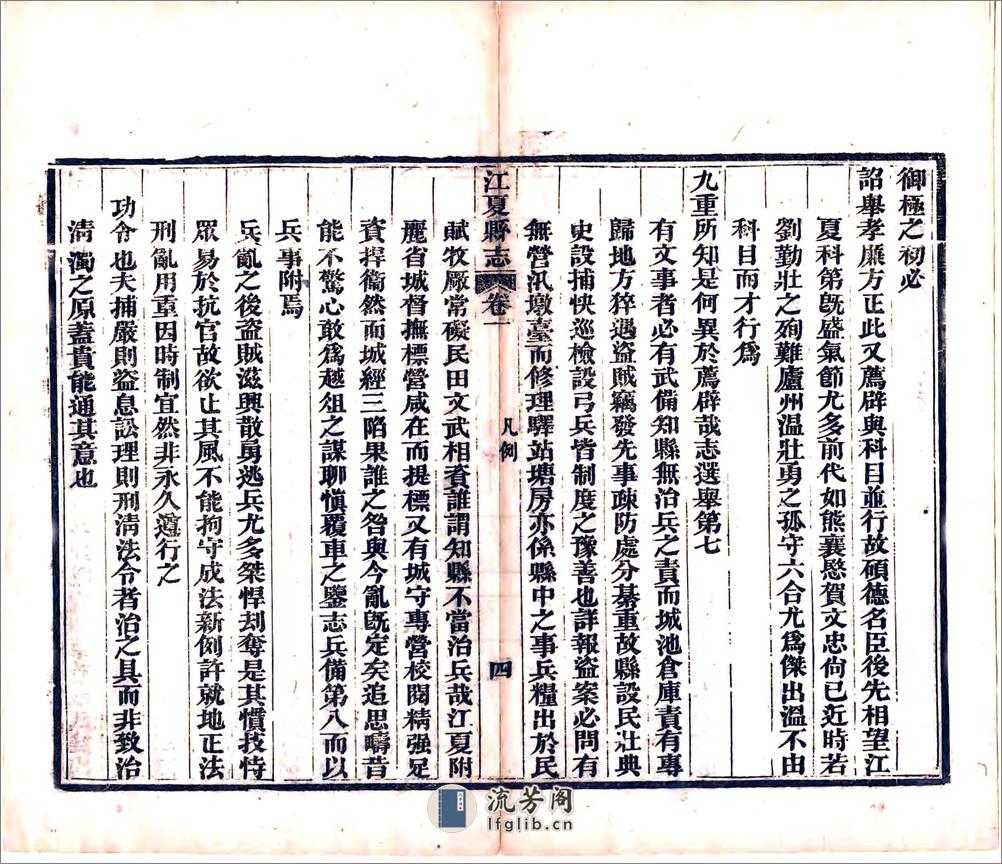 御極之初必
詔舉孝廉方正此又薦辟與科目並行故碩德名臣後先相望江
夏科第旣盛氣節尤多前代如熊襄愍賀文忠尙已近時若
劉勤壯之殉難廬州温壯勇之孤守六合尤爲傑出溫不由
科目而才行爲
九重所知是何異於薦辟哉志選舉第七
有文事者必有武備知縣無治兵之責而城池倉庫責有專
歸地方猝遇盜賊竊發先事疎防處分綦重故縣設民壯典
史設捕快巡檢設弓兵皆制度之豫善也詳報盜案必問有
無營汛墩臺而修理驛站塘房亦係縣中之事兵糧出於民
江夏縣志 卷一 凡例 四
賦牧厰常礙民田文武相資誰謂知縣不當治兵哉江夏附
麗省城督撫標營咸在而提標又有城守專營校閱精强足
資捍衞然而城經三陷果誰之咎與今亂旣定矣追思疇昔
能不驚心敢爲越俎之謀聊愼覆車之鑒志兵備第八而以
兵事附焉
兵亂之後盜賊滋興散勇逃兵尤多桀悍刦奪是其慣技恃
眾易於抗官故欲止其風不能拘守成法新例許就地正法
刑亂用重因時制宜然非永久遵行之
功令也夫捕嚴則盜息訟理則刑淸法令者治之具而非致治
淸濁之原蓋貴能通其意也
流芳阁
lfglib.cn